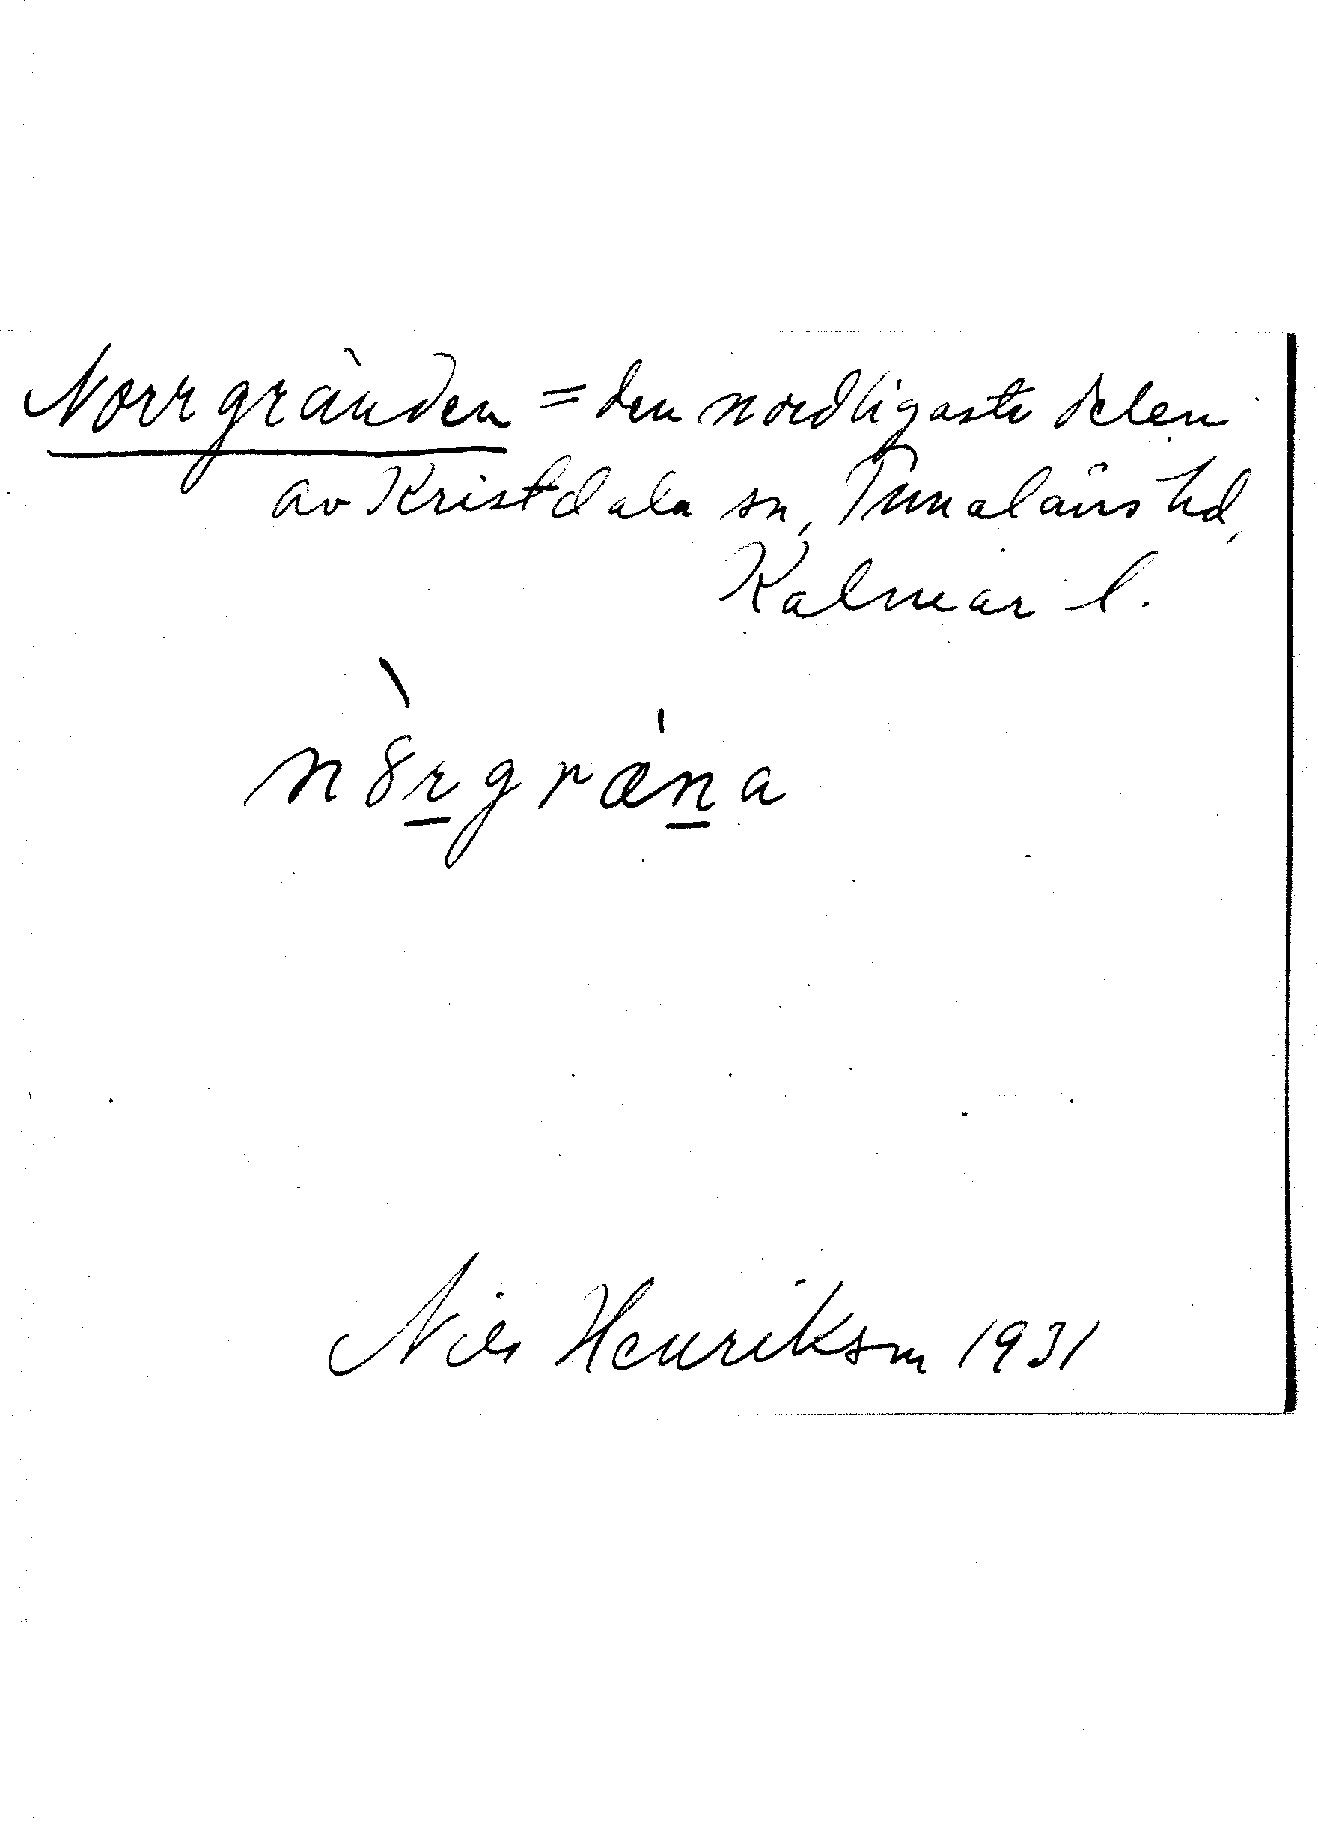 Norrgränden = den nordligaste delen
av Kristdala sn, Tunaläns hd,
Kalmar l.
n8rgræna
Nils Henriksson 1931